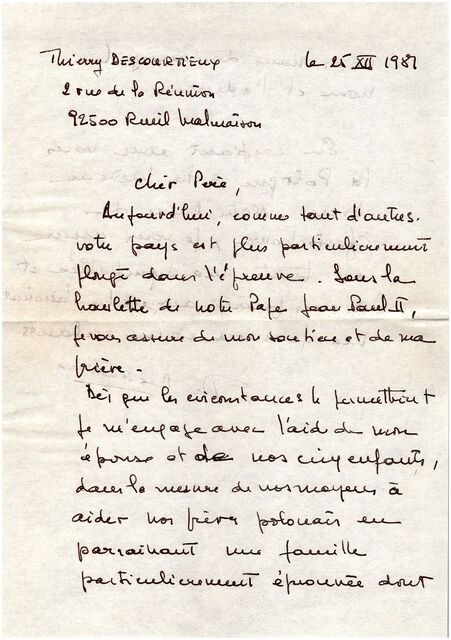 Thierry DESCOURTIEUX
le 25 XII 1981
2 rue de la Réunion
92500 Rueil Malmaison
Cher Père,
Aujourd'hui, comme tant d'autres.
votre pays est plus particulièrement
plongé dans l'épreuve. Sous la
houlette de notre Pape Jean Paul II,
je vous assure de mon soutien et de ma
prière -
Dès que les circonstances le permettront
je m'engage avec l'aide de mon
épouse et de nos cinq enfants,
dans la mesure de nos moyens à
aider nos frères polonais en
parrainant une famille
particulièrement éprouvée dont